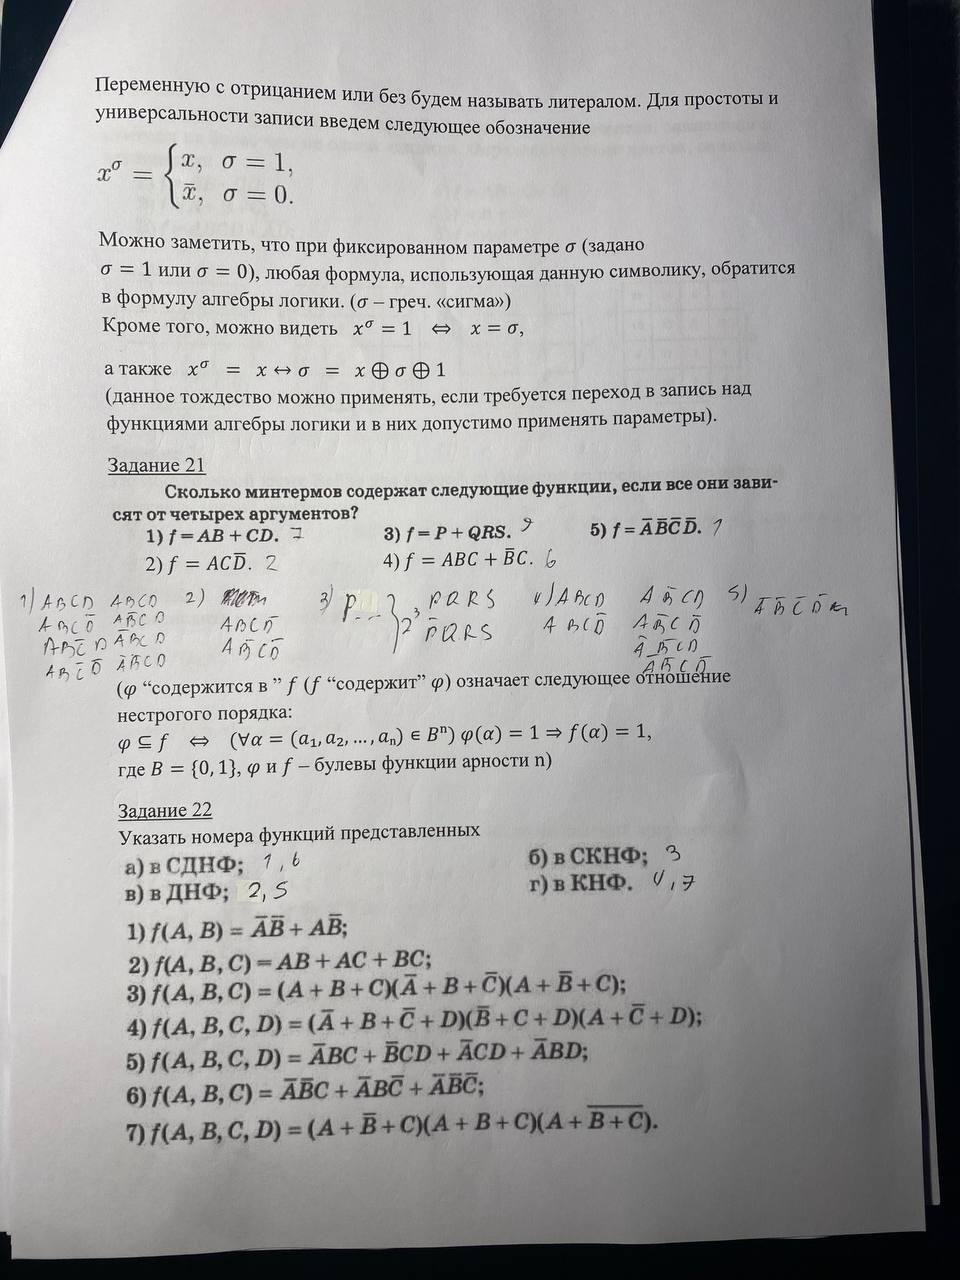 Переменную с отрицанием или без будем называть литералом. Для простоты и
универсальности записи введем следующее обозначение
x^σ = { x, σ = 1,
x̄, σ = 0.
Можно заметить, что при фиксированном параметре σ (задано
σ = 1 или σ = 0), любая формула, использующая данную символику, обратится
в формулу алгебры логики. (σ – греч. «сигма»)
Кроме того, можно видеть x^σ = 1 ⇔ x = σ,
а также x^σ = x ↔ σ = x ⊕ σ ⊕ 1
(данное тождество можно применять, если требуется переход в запись над
функциями алгебры логики и в них допустимо применять параметры).
Задание 21
Сколько минтермов содержат следующие функции, если все они зави-
сят от четырех аргументов?
1) f = AB + CD. 7 3) f = P + QRS. 9 5) f = A̅B̅C̅D̅. 1
2) f = ACD̅. 2 4) f = ABC + B̅C. 6
1) ABCD ABCD 2) ABCD̅ 3) P - - - } 2, PQRS 4) ABCD AB̅CD 5) A̅B̅C̅D̅
ABCD̅ AB̅CD AB̅CD̅ P̅QRS ABCD̅ AB̅CD̅
ABC̅D A̅BCD A̅B̅CD
ABC̅D̅ A̅B̅CD A̅B̅CD̅
(φ “содержится в ” f (f “содержит” φ) означает следующее отношение
нестрогого порядка:
φ ⊆ f ⇔ (∀α = (a₁, a₂, …, aₙ) ∈ Bⁿ) φ(α) = 1 ⇒ f(α) = 1,
где B = {0, 1}, φ и f – булевы функции арности n)
Задание 22
Указать номера функций представленных
а) в СДНФ; 1, 6 б) в СКНФ; 3
в) в ДНФ; 2, 5 г) в КНФ. 4, 7
1) f(A, B) = A̅B̅ + AB̅;
2) f(A, B, C) = AB + AC + BC;
3) f(A, B, C) = (A + B + C)(A̅ + B + C̅)(A + B̅ + C);
4) f(A, B, C, D) = (A̅ + B + C̅ + D)(B̅ + C + D)(A + C̅ + D);
5) f(A, B, C, D) = A̅BC + B̅CD + A̅CD + A̅BD;
6) f(A, B, C) = A̅B̅C + A̅BC̅ + A̅B̅C̅;
7) f(A, B, C, D) = (A + B̅ + C)(A + B + C)(A + B̅ ̅+̅ ̅C̅).